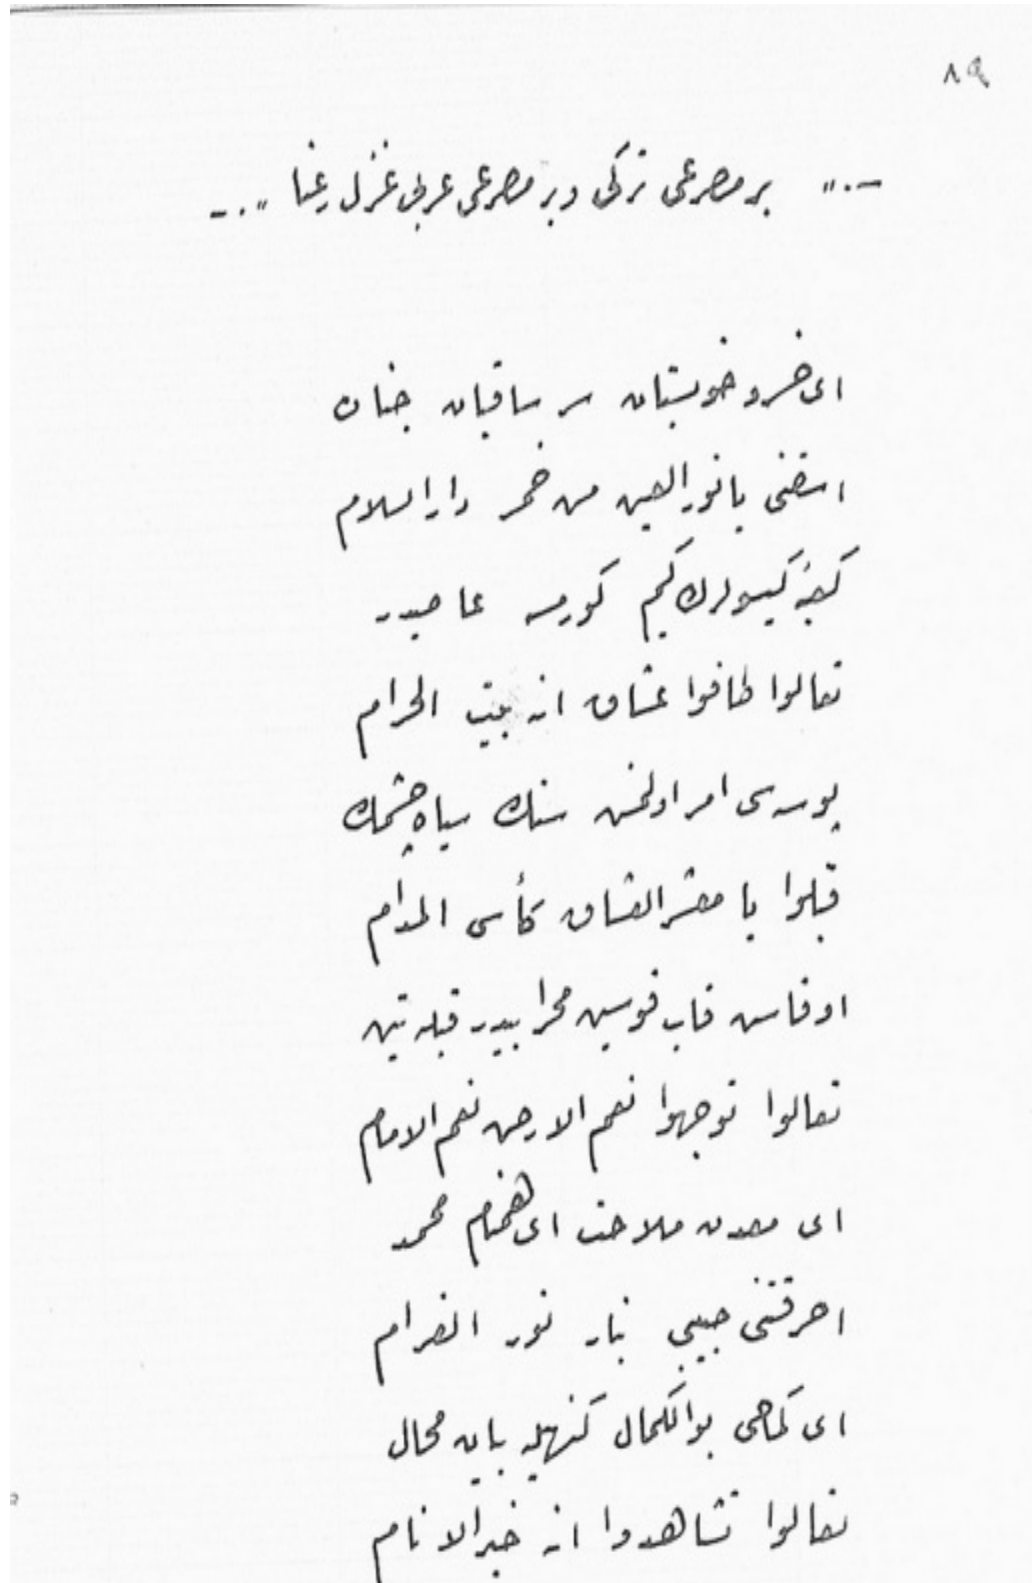 ٨٩
بر مصرعی تركی وبر مصرعی عربی غزل رعنا
ای خسرو خوبستان سر ساقیان جنان
اسقنی یا نور العین من خمر دار السلام
كعبۀ كیسولرك كیم كورسه عاصیدر
تعالوا طافوا عشاق انه بیت الحرام
بوسه سی امر اولنمش سنك سیاه چشمك
قبلوا یا معشر العشاق كأس المدام
اوقاس قاب قوسین محرابیدر قبله تین
تعالوا توجهوا نعم الارض نعم الامام
ای معدن ملاحت ای محمد
احرقتنی حبیبی بنار نور الغرام
ای كماهی بو الكمال كنهیله بیان محال
تعالوا تشاهدوا انه خیر الانام